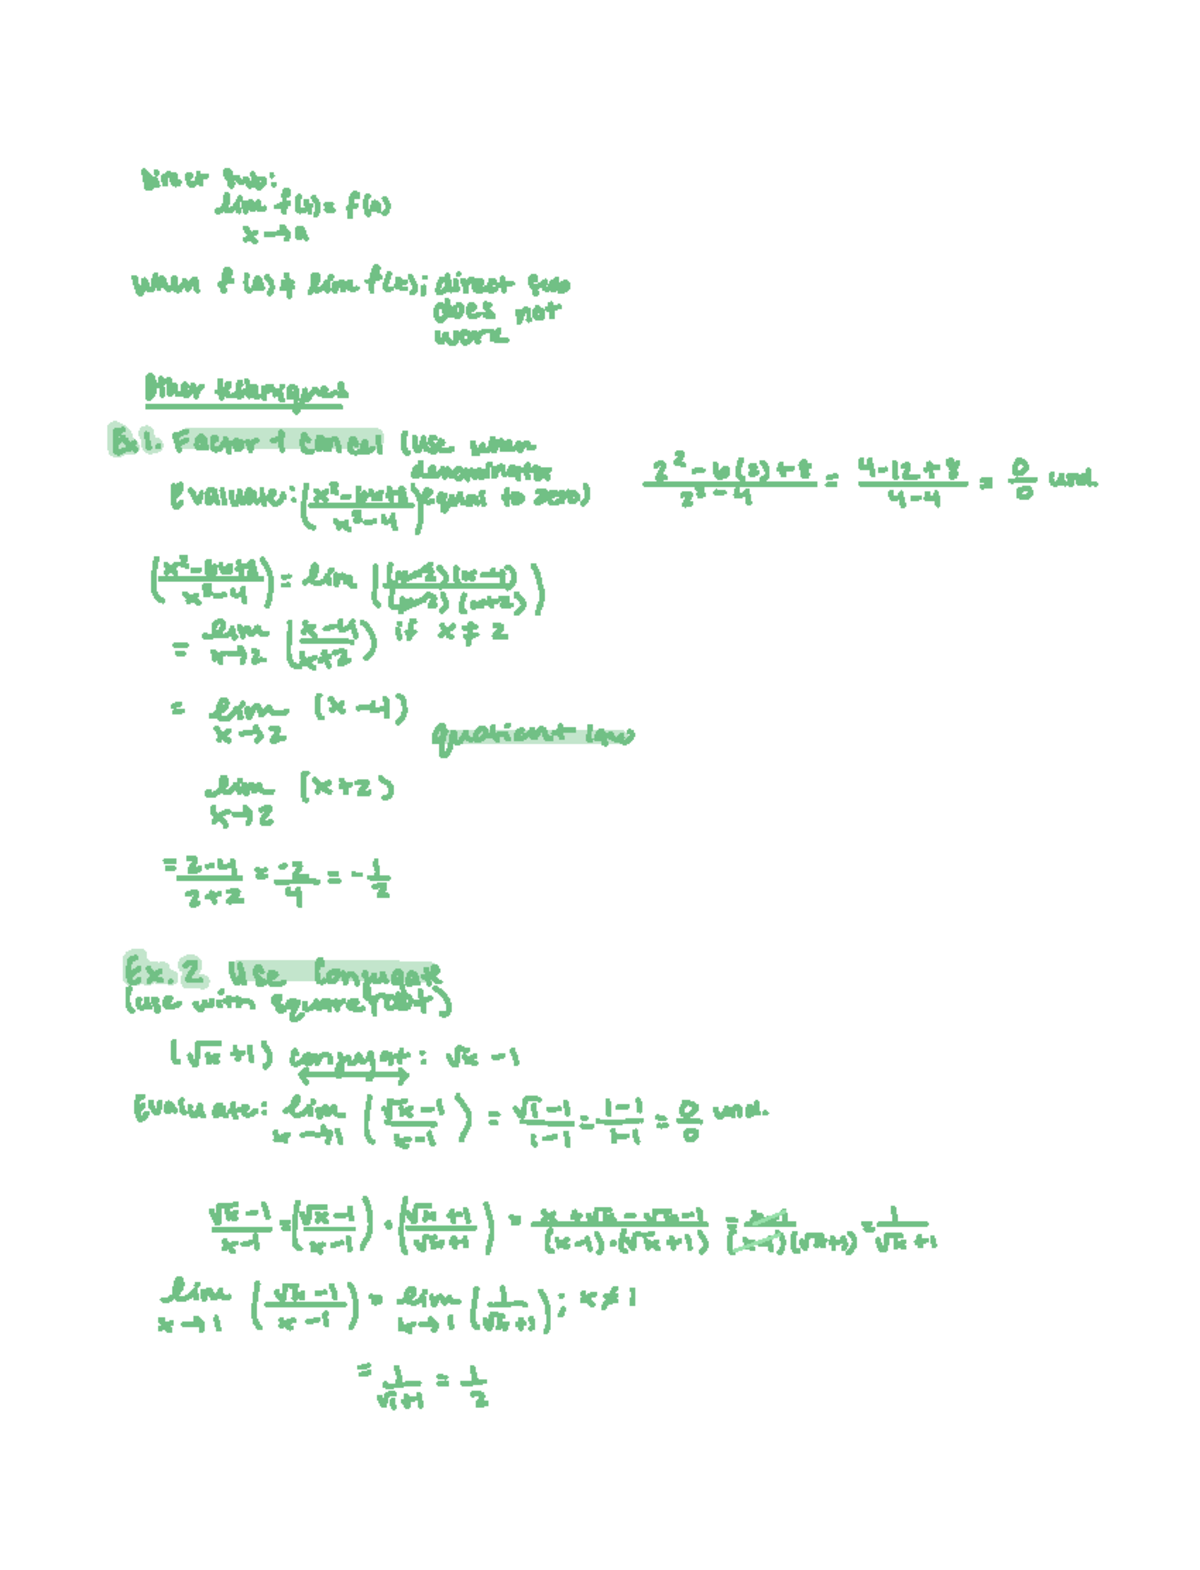 Direct Sub:
lim f(x) = f(a)
x → a
when f(a) ≠ lim f(x); direct sub
does not
work
Other techniques
Ex 1. Factor & Cancel (use when
denominator
equal to zero)
Evaluate: (x² - 6x + 8 / x² - 4)
2² - 6(2) + 8 / 2² - 4 = 4 - 12 + 8 / 4 - 4 = 0/0 und.
(x² - 6x + 8 / x² - 4) = lim ((x-2)(x-4) / (x-2)(x+2))
= lim x→2 (x-4 / x+2) if x ≠ 2
= lim (x-4)
x→2
quotient law
lim (x+2)
x→2
= 2-4 / 2+2 = -2/4 = -1/2
Ex. 2 Use Conjugate
(use with square root)
(√x + 1) conjugat: √x - 1
Evaluate: lim x→1 (√x - 1 / x - 1) = √1 - 1 / 1 - 1 = 1 - 1 / 1 - 1 = 0/0 und.
√x - 1 / x - 1 = (√x - 1 / x - 1) · (√x + 1 / √x + 1) = x + √x - √x - 1 / (x-1)·(√x+1) = x-1 / (x-1)(√x+1) = 1 / √x+1
lim x→1 (√x - 1 / x - 1) = lim x→1 (1 / √x+1); x ≠ 1
= 1 / √1+1 = 1/2